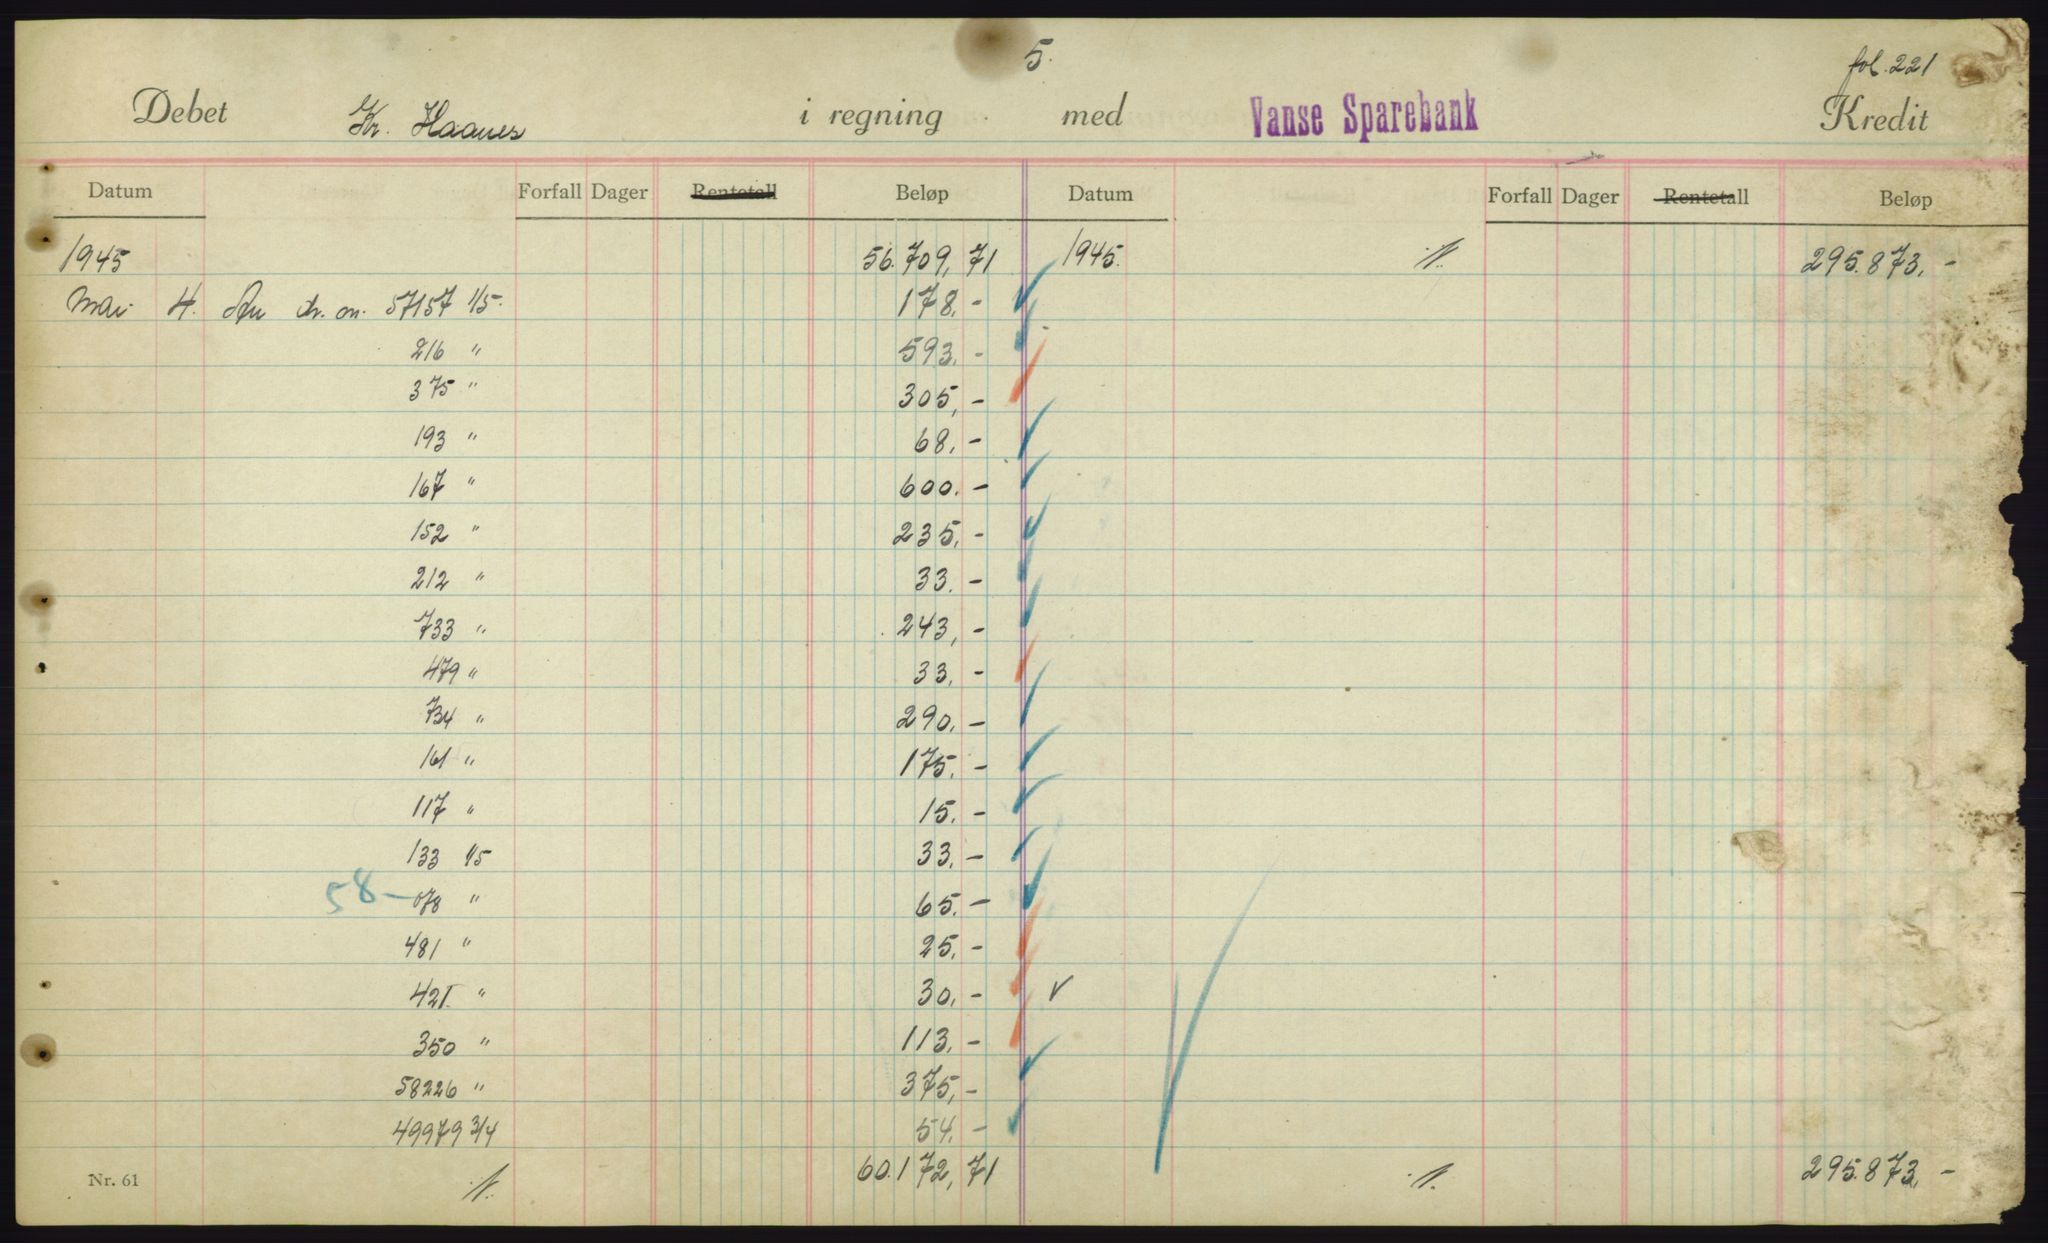 5.
fol. 221
Debet Kr. Haanes i regning med Vanse Sparebank Kredit
Datum Forfall Dager Rentetall Beløp Datum Forfall Dager Rentetall Beløp
1945 56.709,71 1945. 295.873,-
Mai 4. An ch. on. 57157 1/5. 178,-
216 " 593,-
375 " 305,-
193 " 68,-
167 " 600.-
152 " 235,-
212 " 33.-
733 " 243,-
479 " 33,-
734 " 290,-
161 " 175.-
117 " 15.-
133 1/5 33,-
58- 078 " 65.-
481 " 25,-
421. " 30,-
350 " 113,-
58226 " 375,-
49979 3/4 54.-
Nr. 61 60.172,71 295.873,-